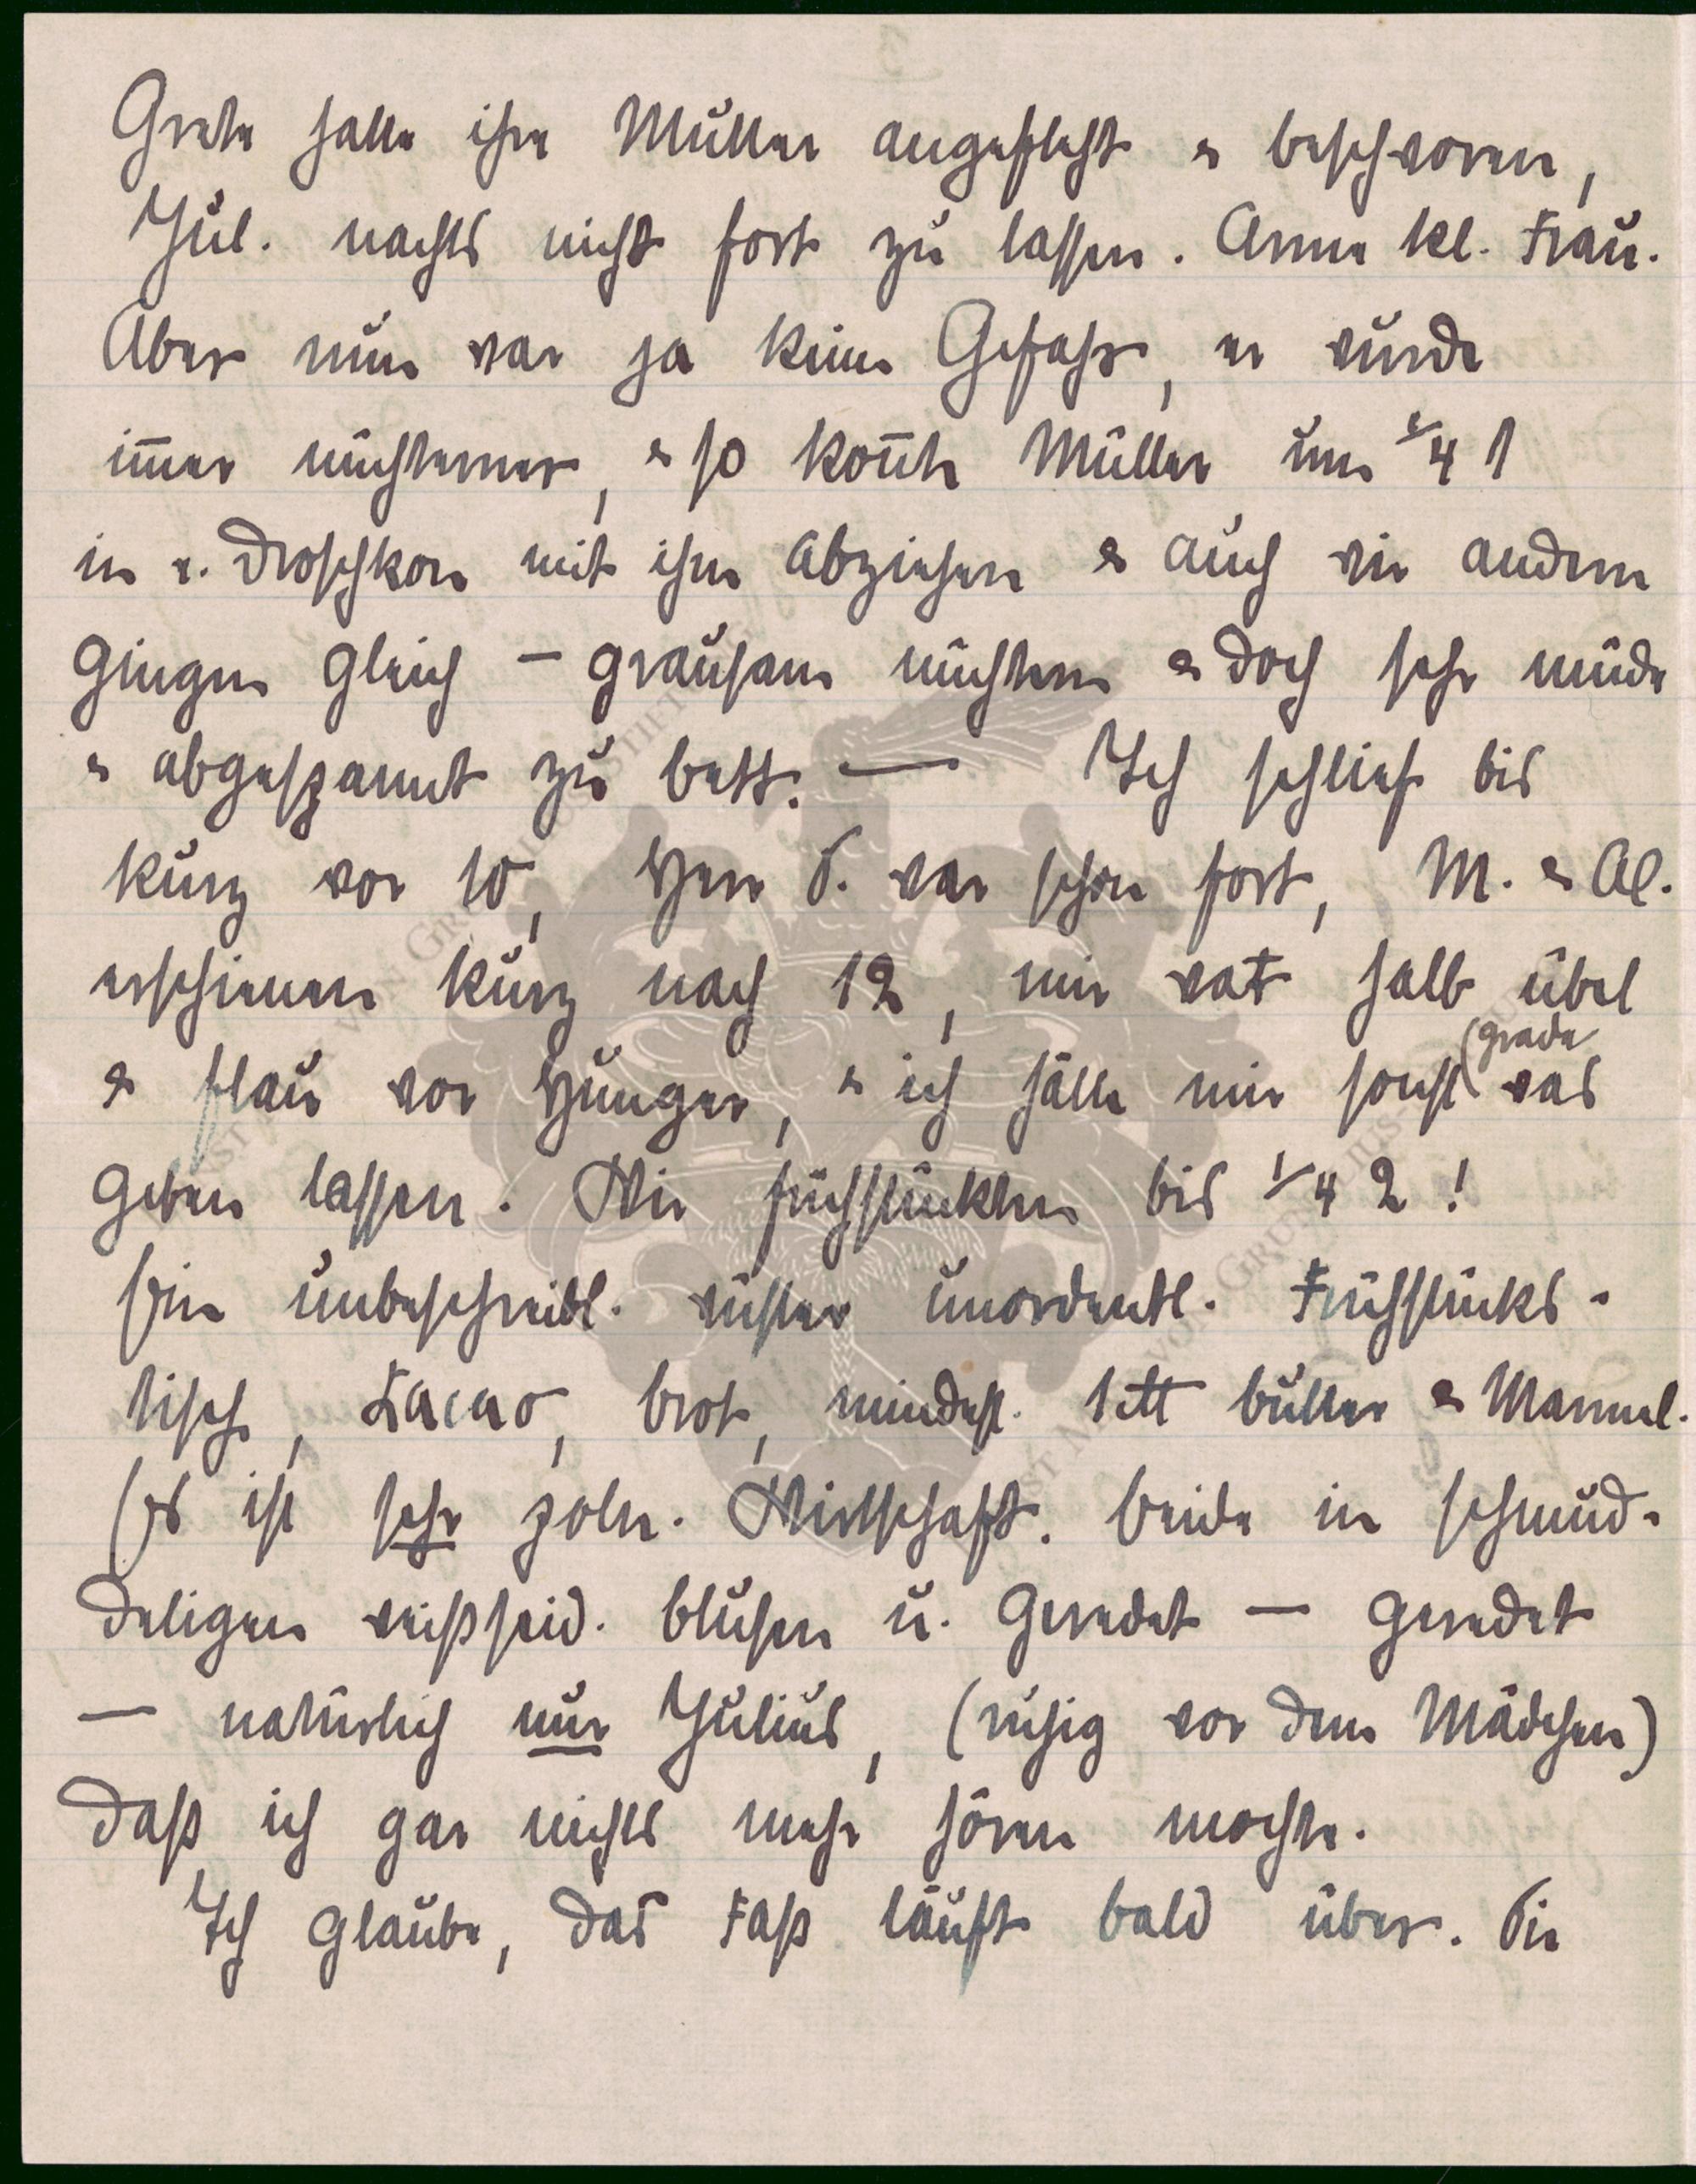 Grete hatte ihre Mutter angefleht & beschworen,
Jul. nachts nicht fort zu lassen. Arme kl. Frau.
Aber nun war ja keine Gefahr, er wurde
im̅er nüchterner, & so kon̅te Müller um 1/4 1
in e. Droschke mit ihm abziehen & auch wir andern
gingen gleich – grausam nüchtern & doch sehr müde
& abgespannt zu bett. — Ich schlief bis
kurz vor 10, Herr S. war schon fort, M. & Al.
erschienen kurz nach 12, mir war halb übel
& flau vor Hunger, & ich hätte mir sonst (grade was
geben lassen. Wir frühstückten bis 1/4 2!
Ein unbeschreibl. wüster unordentl. Frühstücks-
tisch, Kacao, brot, mindest. 1 tt butter & Marmel.
Es ist sehr poln. Wirtschaft. beide in schmud-
deligen weißseid. blusen u. geredet — geredet
— natürlich nur Julius, (ruhig vor dem Mädchen)
daß ich gar nichts mehr hören mochte.
Ich glaube, das Faß läuft bald über. Sie